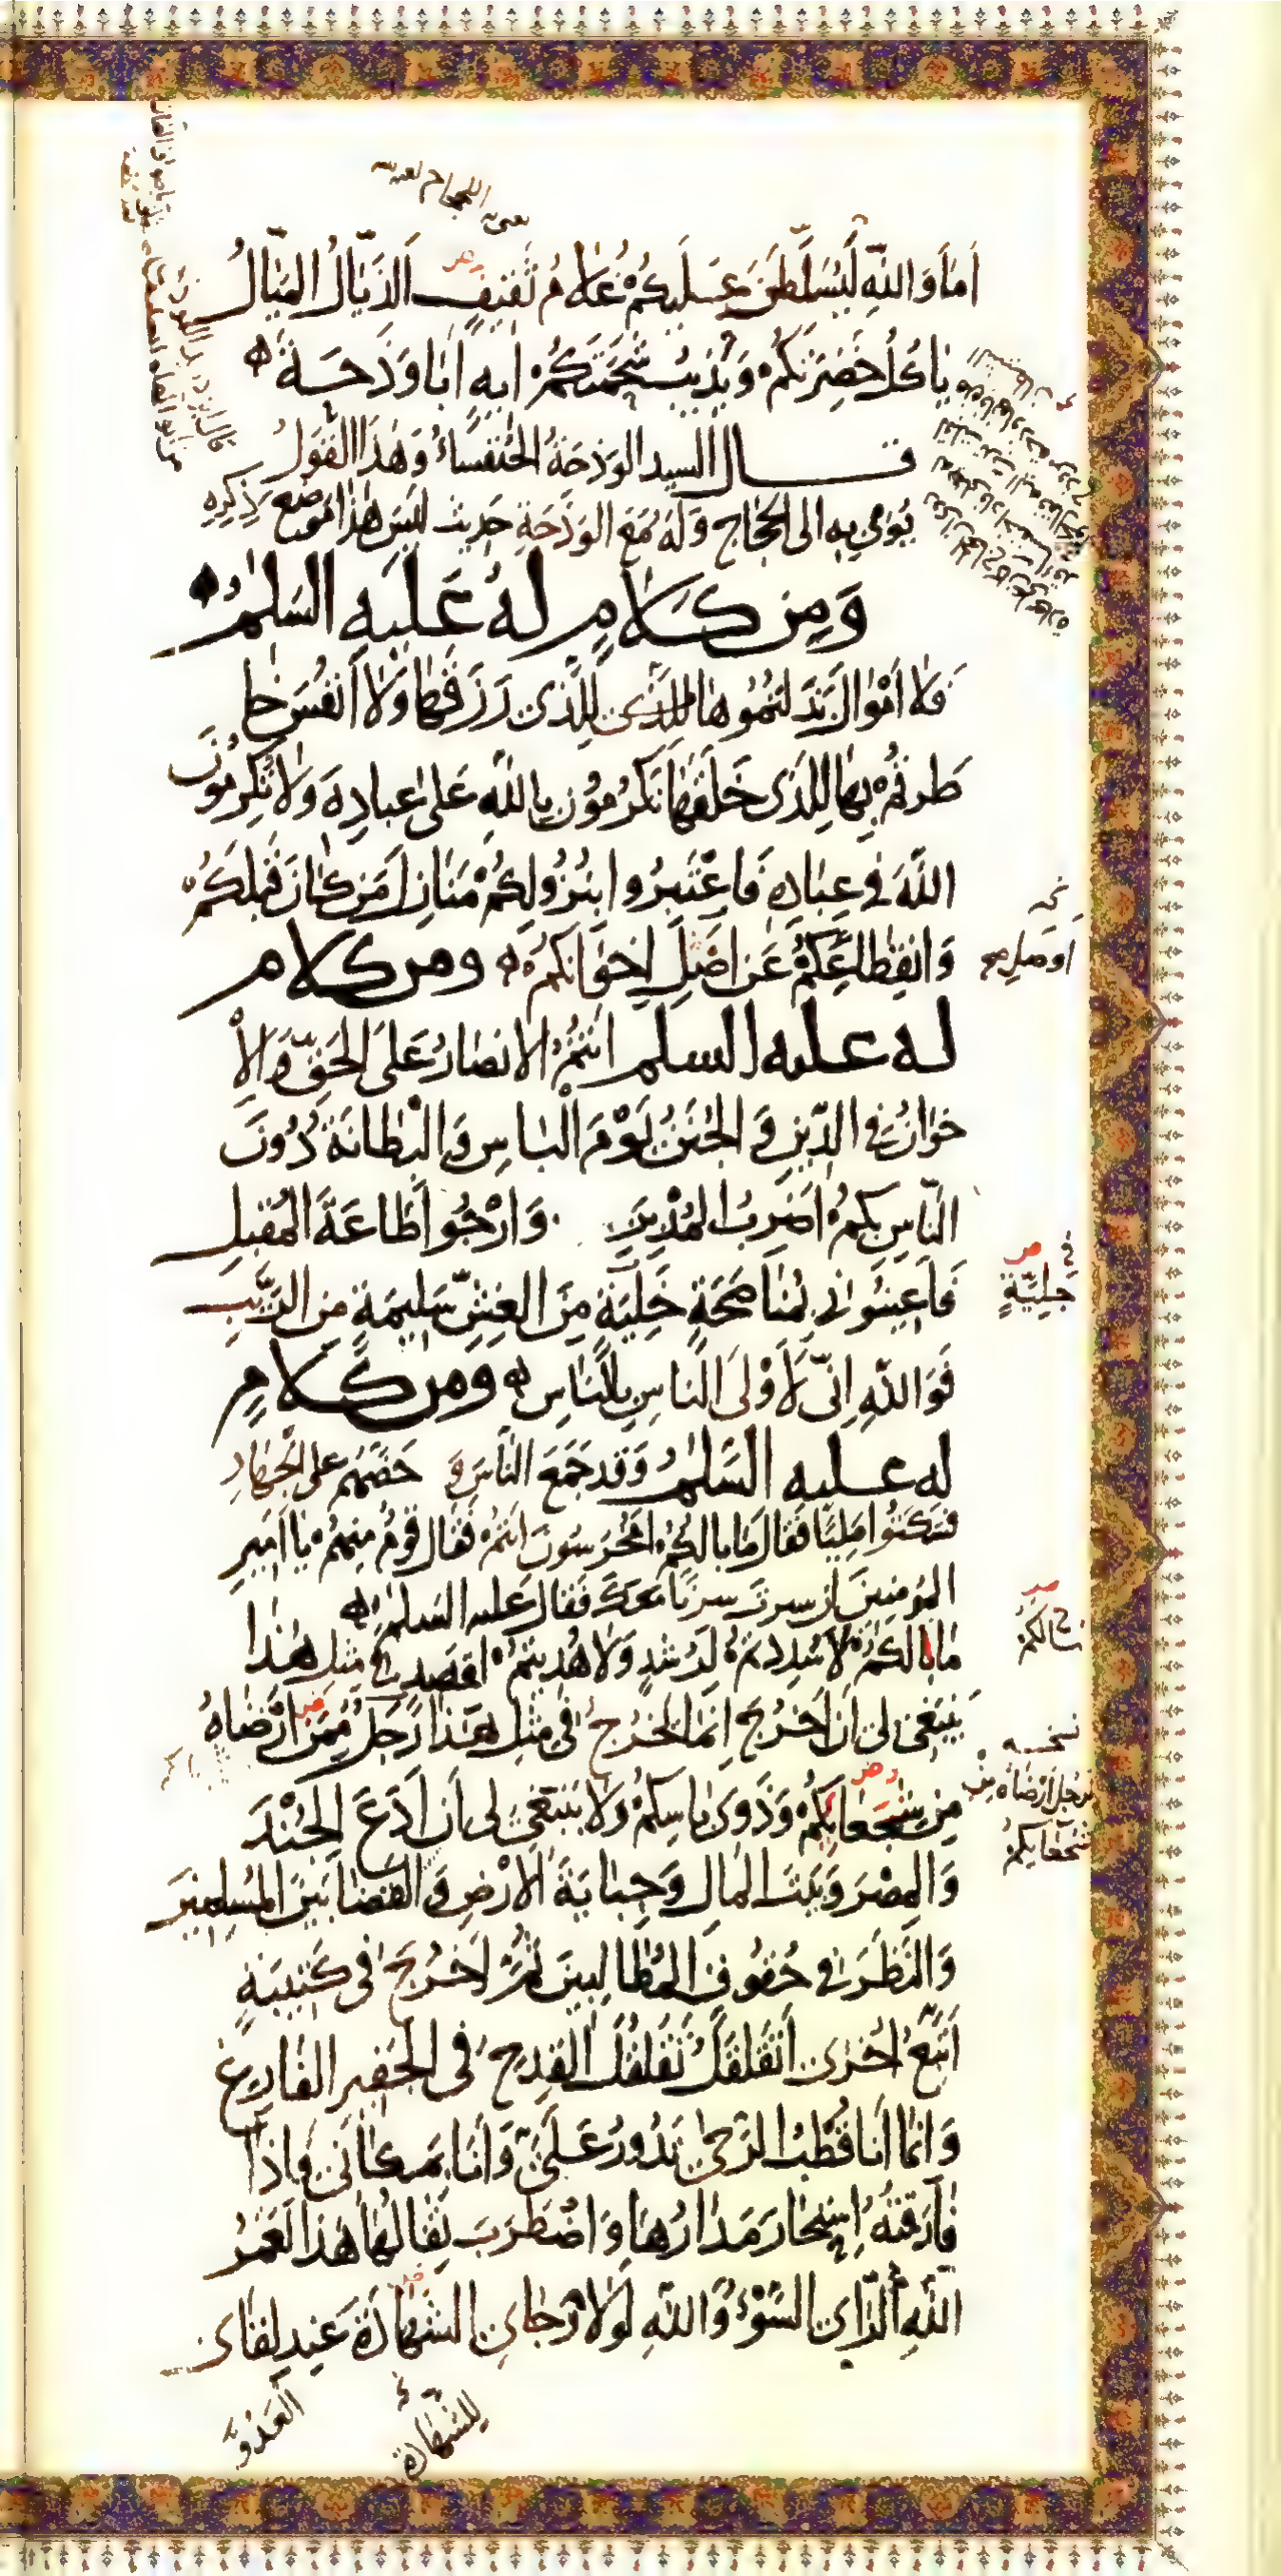 اَمَا وَاللّٰهِ لَيُسَلَّطَنَّ عَلَيكُمْ غُلَامُ ثَقِيفٍ اَلذَيّالُ المَيّالُ
يَاكُلُ خَضِرَتَكُمْ وَيُذِيبُ شَحْمَتَكُمْ اِيهٍ اَبَا وَذَحَةَ
قال السيد الوَذَحَةُ الخُنفَسَاءُ وَهٰذَا القَولُ
يُومِي بِهِ الى الحَجّاجِ وَلَهُ مَعَ الوَذَحَةِ حَدِيث لَيسَ هٰذا مَوضِعَ ذِكرِهِ
وَمِن كَلَامٍ لَهُ عَلَيهِ السَّلٰمُ
فَلَا اَمْوَالَ بَذَلتُمُوهَا لِلَّذِى رَزَقَهَا وَلَا اَنفُسَ خا
طَرتُمْ بِهَا لِلَّذِى خَلَقَهَا تَكرُمُونَ بِاللّٰهِ عَلَى عِبَادِهِ وَلَا تُكرِمُونَ
اللّٰهَ فِى عِبَادِهِ فَاعْتَبِرُوا بِنُزُولِكُمْ مَنَازِلَ مَن كَانَ قَبلَكُمْ
وَانقِطَاعِكُمْ عَن اَصْلِ اِخوَانِكُمْ ومن كلام
اوصل
له عليه السلم اَنتُمُ الانصَارُ عَلَى الحَقِّ وَالاِ
خوَانُ فِى الدِّينِ وَالجُنَنُ يَوْمَ الْبَاسِ وَالْبِطَانَةُ دُونَ
النَّاسِ بِكُمْ اَضرِبُ المُدْبِرَ وَاَرْجُوا طَاعَةَ المُقبِلِ
فَاَعِينُونِى بِمُنَاصَحَةٍ خَلِيَّةٍ مِنَ الغِشِّ سَلِيمَةٍ مِن الرَّيبِ
جَلِيَّةٍ
فَوَاللّٰهِ اِنّى لَاَوْلَى النّاسِ بِالنّاسِ ومن كلامٍ
له عليه السَّلٰمُ وَقَد جَمَعَ النَّاسَ وَ حَضَّهُم على الجِهَادِ
فَسَكَتُوا مَلِيًّا فَقَالَ مَا بَالُكُمْ اَمُخرَسُونَ اَنتُمْ فَقَالَ قَومٌ مِنهُمْ يَا اَمِيرَ
المُومِنينَ اِن سِرتَ سِرنَا مَعَكَ فَقَالَ عَليه السلٰم
مَا بَالُكُمْ لَا سُدِدتُمْ لِرُشدٍ وَلَا هُدِيتُمْ لِقَصدٍ اَفِى مِثلِ هٰذا
يَنبَغِى لِى اَن اَخرُجَ اِنَّمَا يَخرُجُ فِى مِثلِ هٰذا رَجُلٌ مِمَّن اَرْضَاهُ
نسخه
رَجُل اَرْضَاهُ مِن
شُجعَانِكُمْ
مِن شُجَعَائِكُمْ وَذَوِى بَاسِكُمْ وَلَا يَنبَغِى لِى اَن اَدَعَ الجُنْدَ
وَالمِصْرَ وَبَيتَ المَالِ وَجِبَايَةَ الاَرْضِ وَالقَضَا بَينَ المُسلِمِينَ
وَالنَّظَرَ فِى حُقُوقِ المُطَالِبِينَ ثُمَّ اَخرُجَ فى كَتِيبَةٍ
اَتّبِعُ اُخرَى اَتَقَلقَلُ تَقَلقُلَ القِدحِ فِى الجَفِيرِ الفَارِغِ
وَانَّمَا اَنَا قُطْبُ الرَّحَى تَدُورُ عَلَيَّ وَاَنَا بِمَكَانِى فَاِذَا
فَارَقتُهُ اِستَحَارَ مَدَارُهَا وَاضْطَرَبَ ثِفَالُهَا هٰذَا لَعَمْرُ
اللّٰهِ الرَّاىُ السُّوْءُ وَاللّٰهِ لَوْلَا رَجَاىِ الشَّهَادَةَ عِندَ لِقَاىَ
لِلشَّهَادَةِ
العَدُوَّ